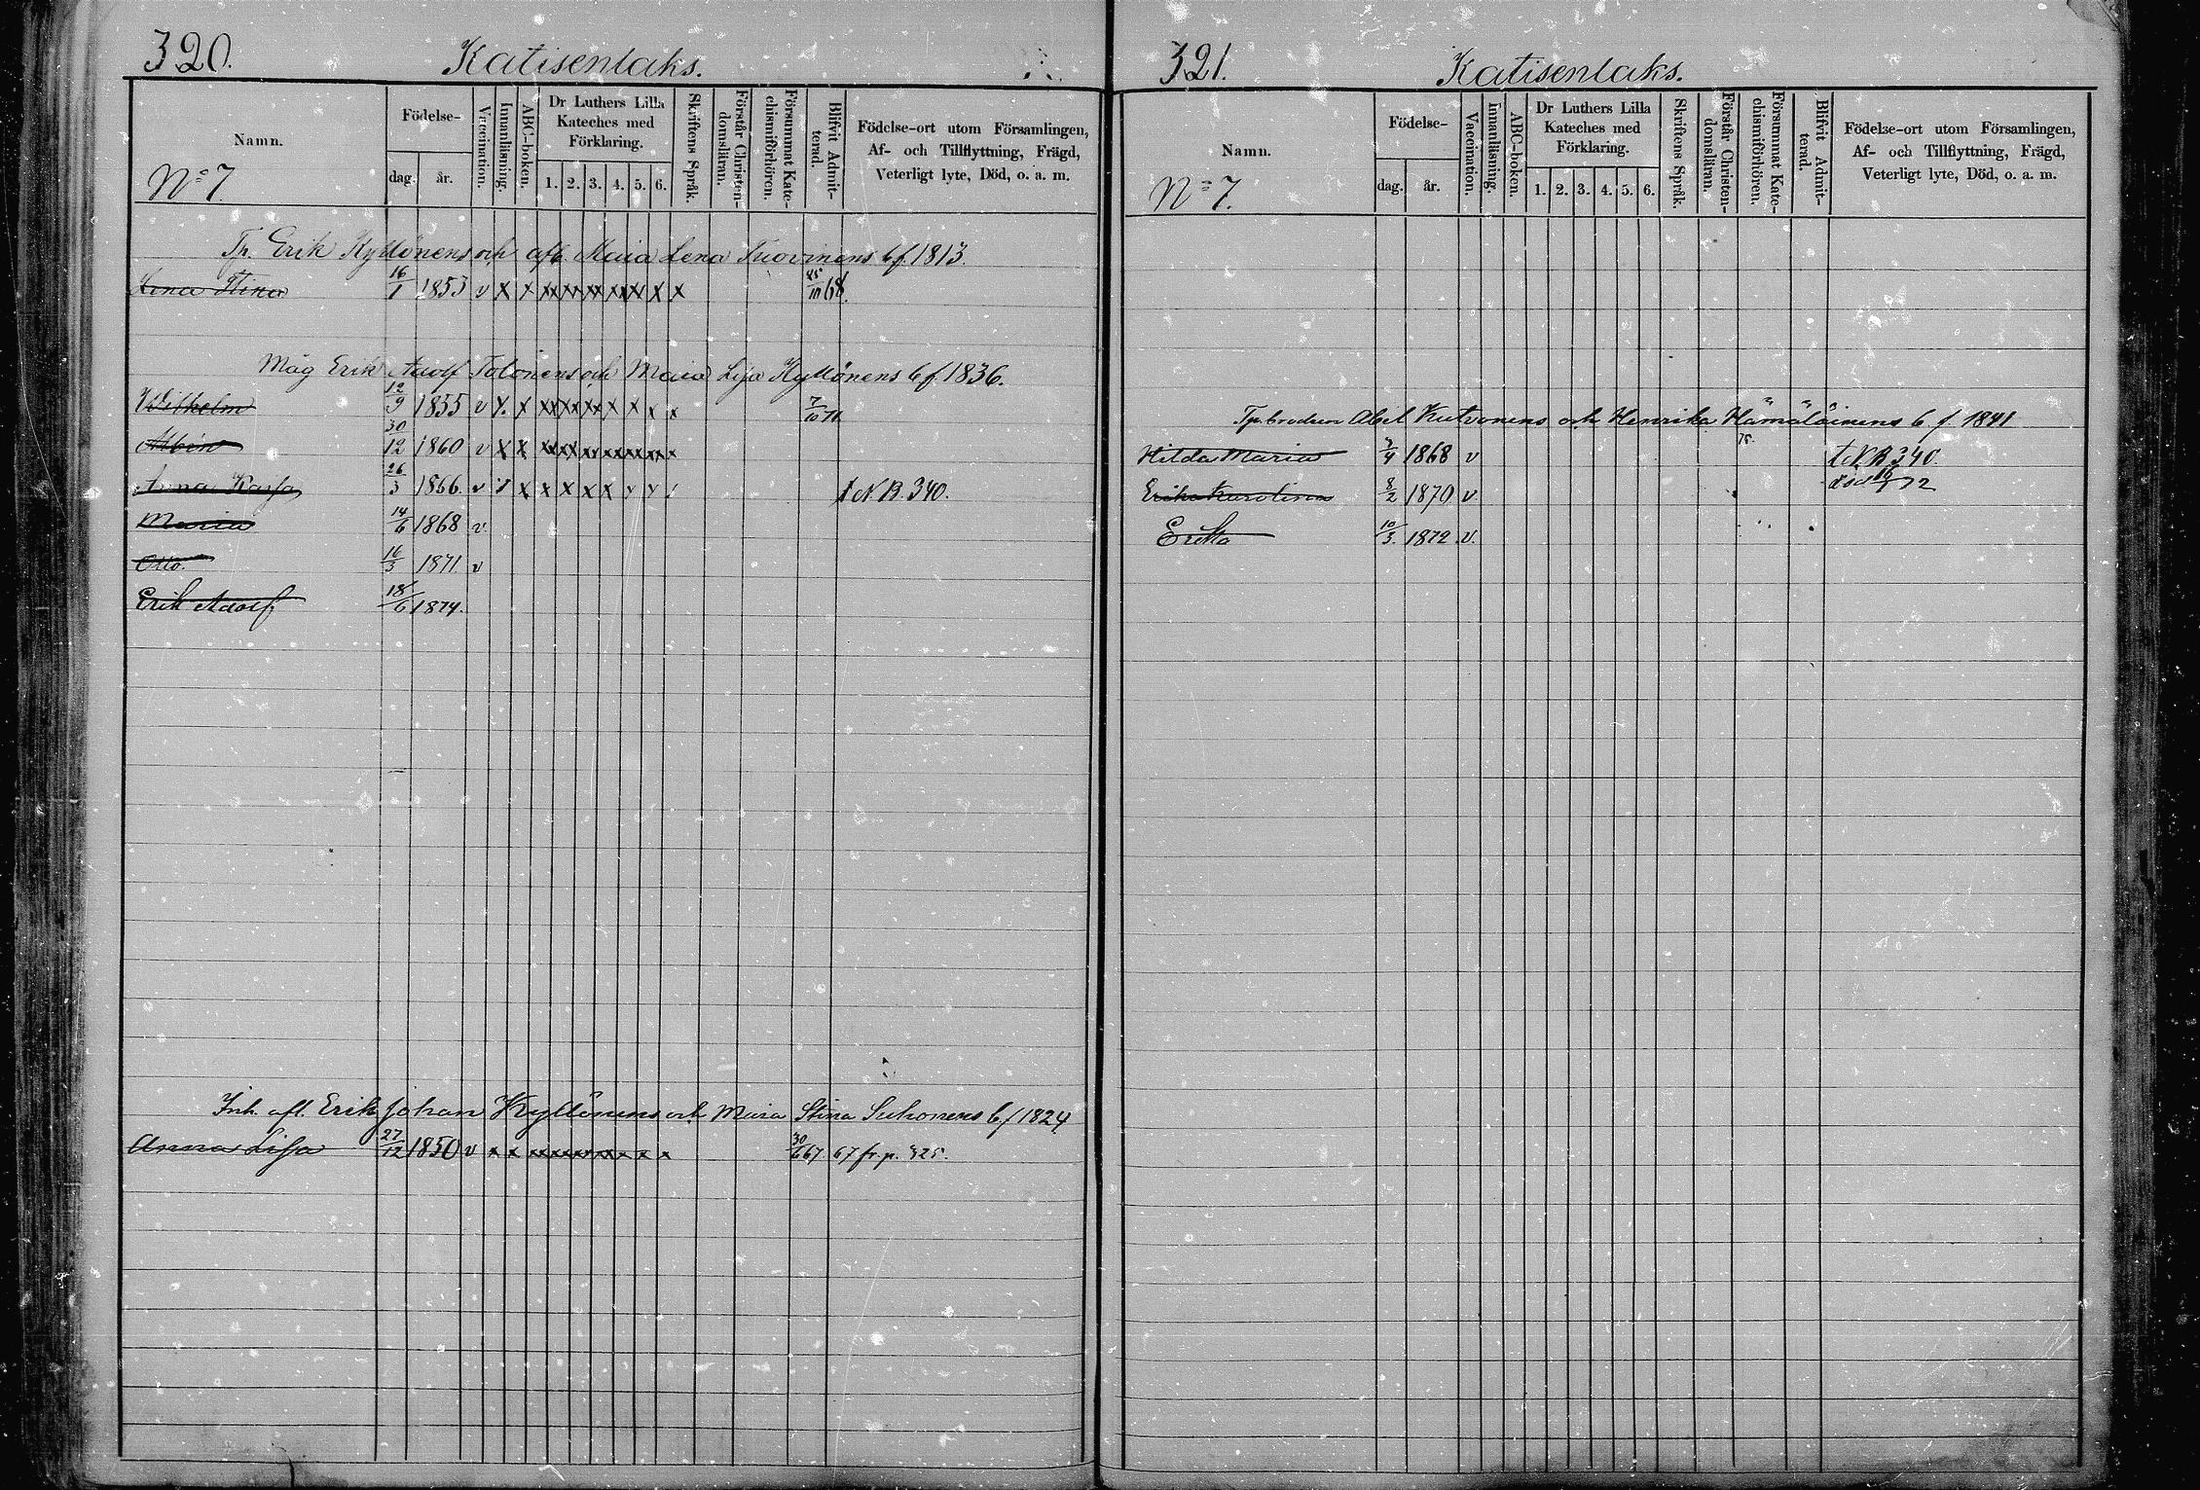 320.
Katisenlaks.
Namn.
Födelse-
dag.
år.
Vaccination.
Innanläsning.
ABC-boken.
Dr Luthers Lilla
Kateches med
Förklaring.
1. 2. 3. 4. 5. 6.
Skriftens Språk.
Förstår Christen-
domsläran.
Försummat Kate-
chismiförhören.
Blifvit Admit-
terad.
Födelse-ort utom Församlingen,
Af- och Tillflyttning, Frägd,
Veterligt lyte, Död, o. a. m.
No 7.
Tp. Erik Kyllönens och afl. Maria Lena Tuovinens b f. 1813.
Lena Stina 16/1 1853 v x x x x x x x x x 68.
Måg Erik Adolf Tolonens och Maria Lisa Kyllönens b f. 1836.
Wilhelm 12/9 1855 v x x x x x x x x x 7/10 71
Albin 30/12 1860 v x x x x x x x x x
Anna Kaisa 26/3 1866 v x x x x x x v v t. N B. 340.
Maria 14/6 1868 v
Otto. 16/3 1871 v
Erik Adolf 18/6 1874.
Inh. afl. Erik Johan Kyllönens och Maria Stina Suhonens b f 1824
Anna Lisa 27/12 1850 v x x x x x x x x x 30/6 67 67 fr. p. 325.
321.
Katisenlaks.
Namn.
Födelse-
dag.
år.
Vaccination.
Innanläsning.
ABC-boken.
Dr Luthers Lilla
Kateches med
Förklaring.
1. 2. 3. 4. 5. 6.
Skriftens Språk.
Förstår Christen-
domsläran.
Försummat Kate-
chismiförhören.
Blifvit Admit-
terad.
Födelse-ort utom Församlingen,
Af- och Tillflyttning, Frägd,
Veterligt lyte, Död, o. a. m.
No 7.
Tp. brodren Abel Kutvonens och Henrika Hämäläinens b. f. 1841
Hilda Maria 1868 v 75 t. N B 340.
Erika Karolina 8/2 1870 v död 72
Erika 10/3. 1872 v.